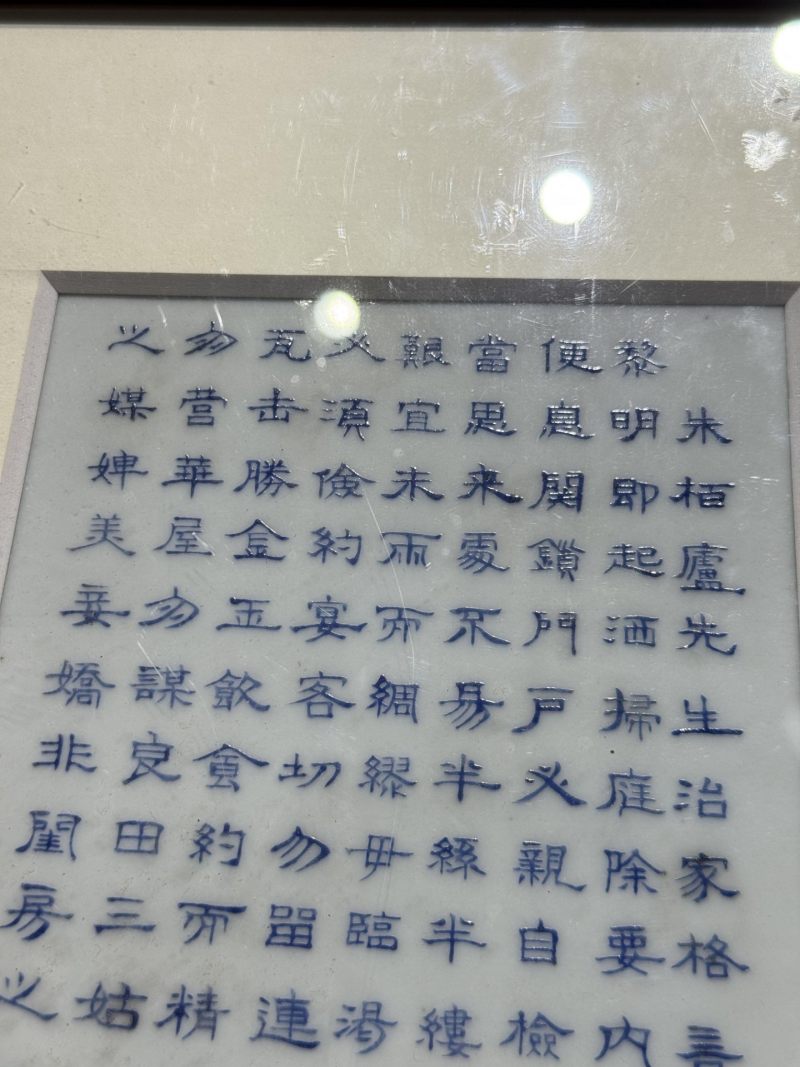 朱栢廬先生治家格言
黎明即起洒掃庭除要内
便息関鎖門戸必親自檢
當思来處不易半絲半縷
艱宜未雨而綢繆毋臨渴
必須儉約宴客切勿留連
瓦缶勝金玉飲食約而精
勿营華屋勿謀良田三姑
之媒婢美妾嬌非閨房之